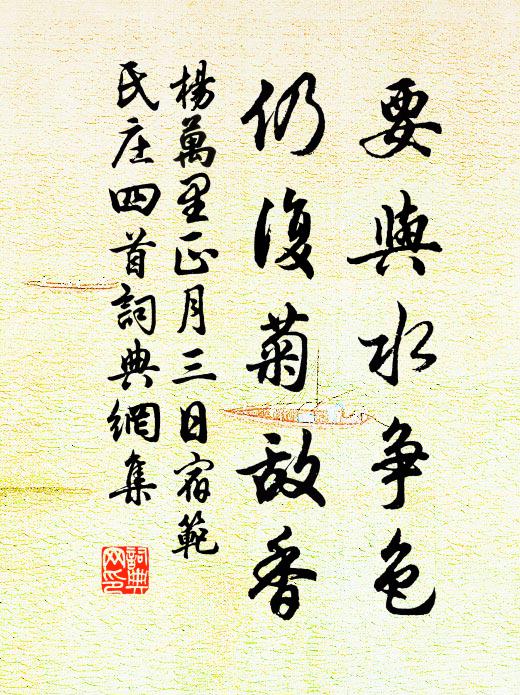 要與水争色
仍復菊敵香
楊萬里正月三日宿範
氏庄四首詞典網集
詞典
网印